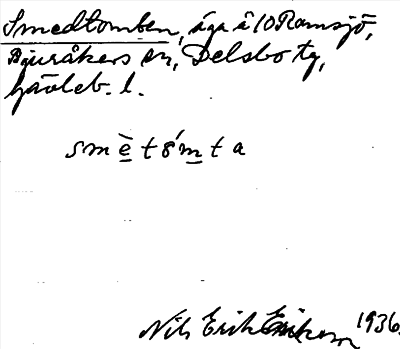 Smedtomten, äga å 10 Ramsjö,
Bjuråkers sn, Delsbo tg,
Gävleb. l.
smèt8́mta
Nils Erik Erikson 1936.